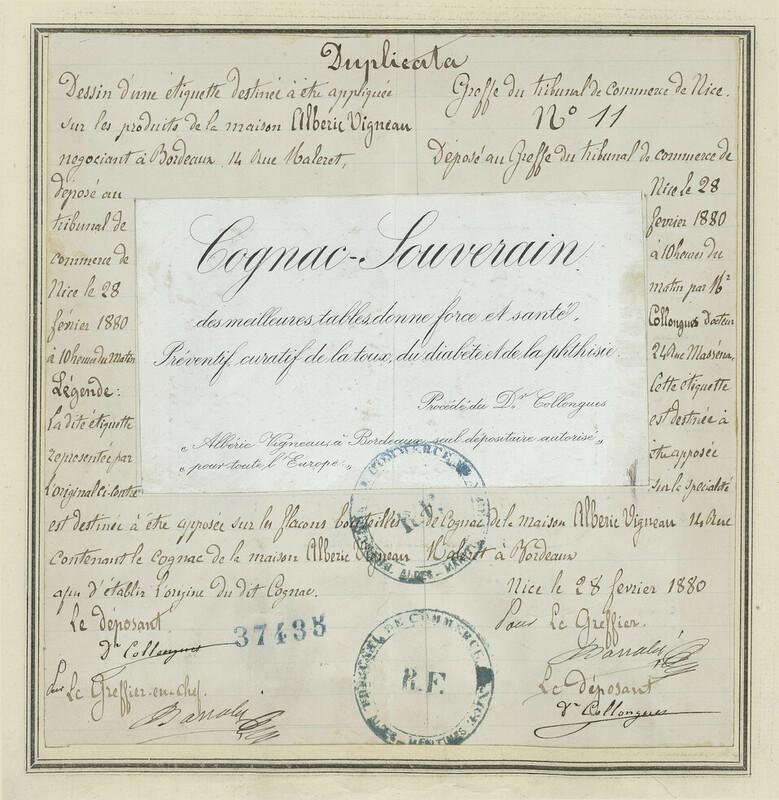 Duplicata
Dessin d'une étiquette destinée à être appliquée
sur les produits de la maison Albéric Vigneau
negociant à Bordeaux, 14 Rue Haleret,
déposé au
tribunal de
commerce de
Nice le 28
février 1880
à 10 heures du matin
Légende:
La dite étiquette
représentée par
l'original ci-contre
est destinée à être apposée sur les flacons bouteilles
contenant le cognac de la maison Alberic Vigneau
afin d'établir l'origine du dit Cognac.
Le déposant
Dr Collongues
Pour Le Greffier-en-chef.
37435
Greffe du tribunal de commerce de Nice.
No 11
Déposé au Greffe du tribunal de commerce de
Nice le 28
fevrier 1880
à 10 heures du
matin par Mr
Collongues Docteur
24 Rue Masséna,
Cette étiquette
est destinée à
être apposée
sur la spécialité
de Cognac de la maison Alberic Vigneau 14 Rue
Haleret à Bordeaux
Nice le 28 fevrier 1880
Pour Le Greffier.
Le déposant
Dr Collongues
Cognac-Souverain
des meilleures tables, donne force et santé,
Préventif, curatif de la toux, du diabète et de la phthisie.
Procédé du Dr. Collongues
„Albéric Vigneau, à Bordeaux, seul dépositaire autorisé„
„pour toute l'Europe.„
COMMERCE
R.F.
ALPES-MARITIMES
TRIBUNAL DE COMMERCE NICE
R.F.
ALPES-MARITIMES